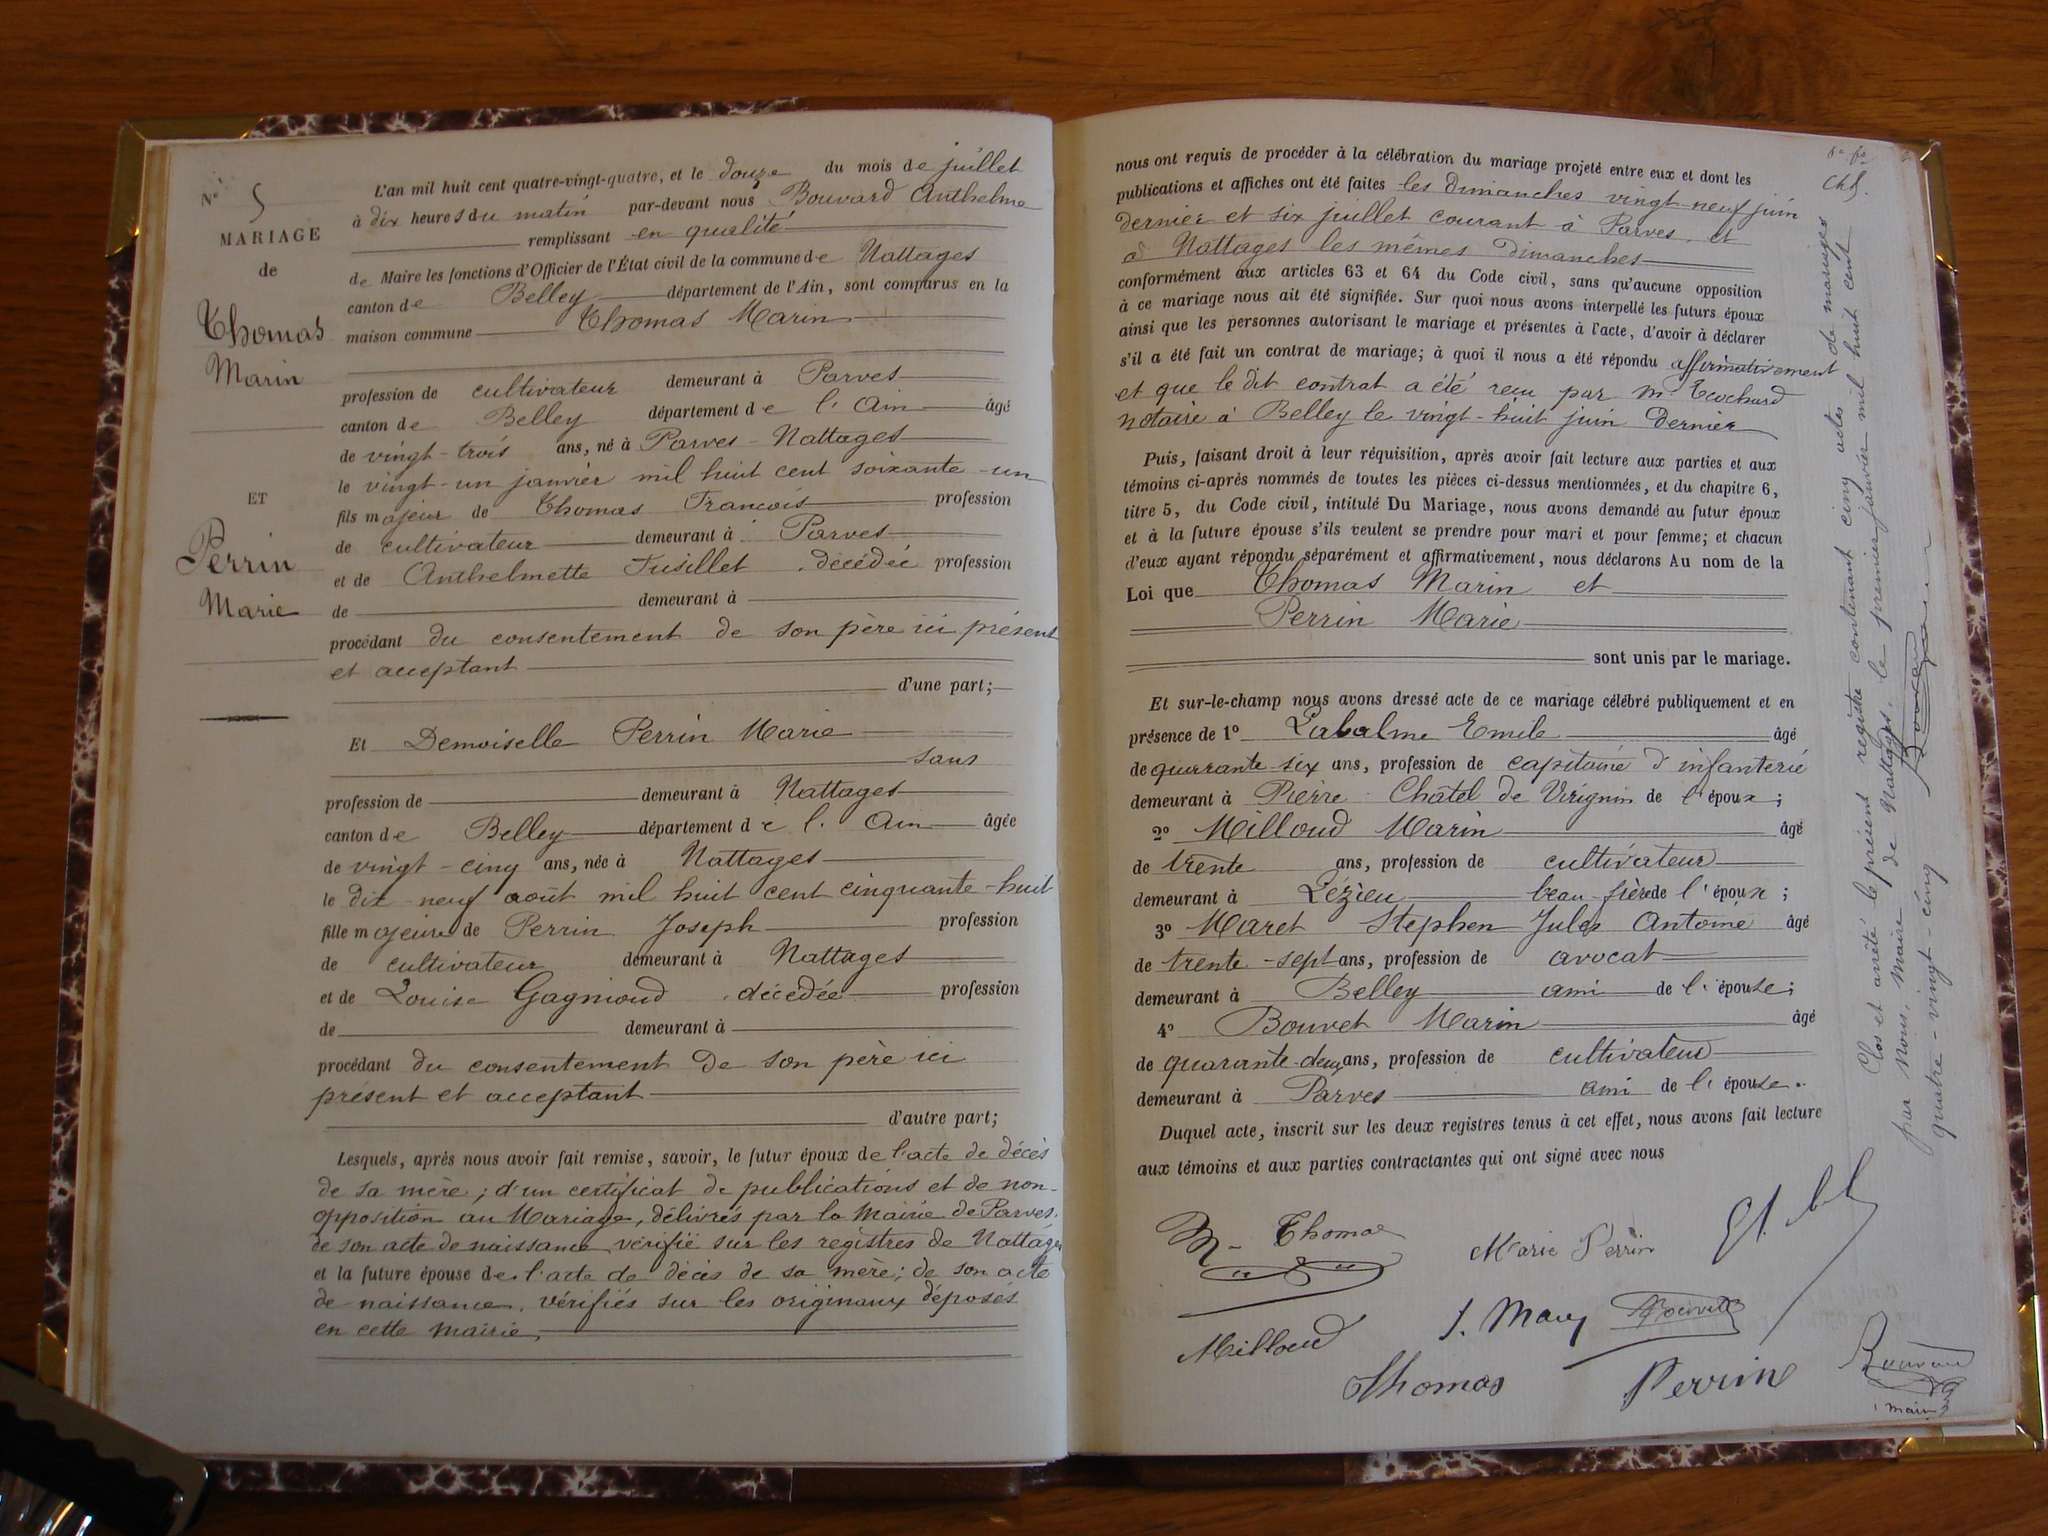 N° 5
MARIAGE
de
Thomas
Marin
ET
Perrin
Marie
L'an mil huit cent quatre-vingt-quatre, et le douze du mois de juillet
à dix heures du matin par-devant nous Bouvard Anthelme
remplissant en qualité
de Maire les fonctions d'Officier de l'État civil de la commune de Nattages
canton de Belley département de l'Ain, sont comparus en la
maison commune Thomas Marin
profession de cultivateur demeurant à Parves
canton de Belley département de l'Ain âgé
de vingt-trois ans, né à Parves-Nattages
le vingt-un janvier mil huit cent soixante-un
fils majeur de Thomas François profession
de cultivateur demeurant à Parves
et de Anthelmette Fusillet décédée profession
de demeurant à
procédant du consentement de son père ici présent
et acceptant
d'une part;
Et Demoiselle Perrin Marie
sans
profession de demeurant à Nattages
canton de Belley département de l'Ain âgée
de vingt-cinq ans, née à Nattages
le dix-neuf août mil huit cent cinquante-huit
fille majeure de Perrin Joseph profession
de cultivateur demeurant à Nattages
et de Louise Gagnioud décédée profession
de demeurant à
procédant du consentement de son père ici
présent et acceptant
d'autre part;
Lesquels, après nous avoir fait remise, savoir, le futur époux de l'acte de décès
de sa mère; d'un certificat de publications et de non-
opposition au Mariage, délivrés par la Mairie de Parves.
de son acte de naissance vérifié sur les registres de Nattages
et la future épouse de l'acte de décès de sa mère; de son acte
de naissance, vérifiés sur les originaux déposés
en cette mairie,
nous ont requis de procéder à la célébration du mariage projeté entre eux et dont les
publications et affiches ont été faites les dimanches vingt-neuf juin
dernier et six juillet courant à Parves et
à Nattages les mêmes dimanches
conformément aux articles 63 et 64 du Code civil, sans qu'aucune opposition
à ce mariage nous ait été signifiée. Sur quoi nous avons interpellé les futurs époux
ainsi que les personnes autorisant le mariage et présentes à l'acte, d'avoir à déclarer
s'il a été fait un contrat de mariage; à quoi il nous a été répondu affirmativement
et que le dit contrat a été reçu par Me
notaire à Belley le vingt-huit juin dernier
Puis, faisant droit à leur réquisition, après avoir fait lecture aux parties et aux
témoins ci-après nommés de toutes les pièces ci-dessus mentionnées, et du chapitre 6,
titre 5, du Code civil, intitulé Du Mariage, nous avons demandé au futur époux
et à la future épouse s'ils veulent se prendre pour mari et pour femme; et chacun
d'eux ayant répondu séparément et affirmativement, nous déclarons Au nom de la
Loi que Thomas Marin et
Perrin Marie
sont unis par le mariage.
Et sur-le-champ nous avons dressé acte de ce mariage célébré publiquement et en
présence de 1° Labalme Emile âgé
de quarrante-six ans, profession de capitaine d'infanterie
demeurant à Pierre-Châtel de Virignin de l'époux;
2° Milloud Marin âgé
de trente ans, profession de cultivateur
demeurant à Lézieu beau-frère de l'époux;
3° Maret Stephen Jules Antoine âgé
de trente-sept ans, profession de avocat
demeurant à Belley ami de l'épouse;
4° Bouvet Marin âgé
de quarante-deux ans, profession de cultivateur
demeurant à Parves ami de l'épouse.
Duquel acte, inscrit sur les deux registres tenus à cet effet, nous avons fait lecture
aux témoins et aux parties contractantes qui ont signé avec nous
M. Thomas
Marie Perrin
Milloud
Thomas
Perrin
Bouvard
maire
Clos et arrêté le présent registre contenant cinq actes de mariages
par Nous, Maire de Nattages, le premier janvier mil huit cent
quatre-vingt-cinq
Bouvard